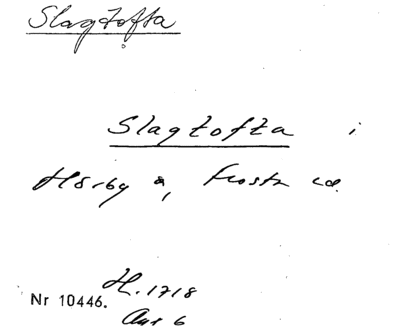 Slagtofta
Slagtofta i
Hörby s, Frosta hd.
H. 1718
Nr 10446.